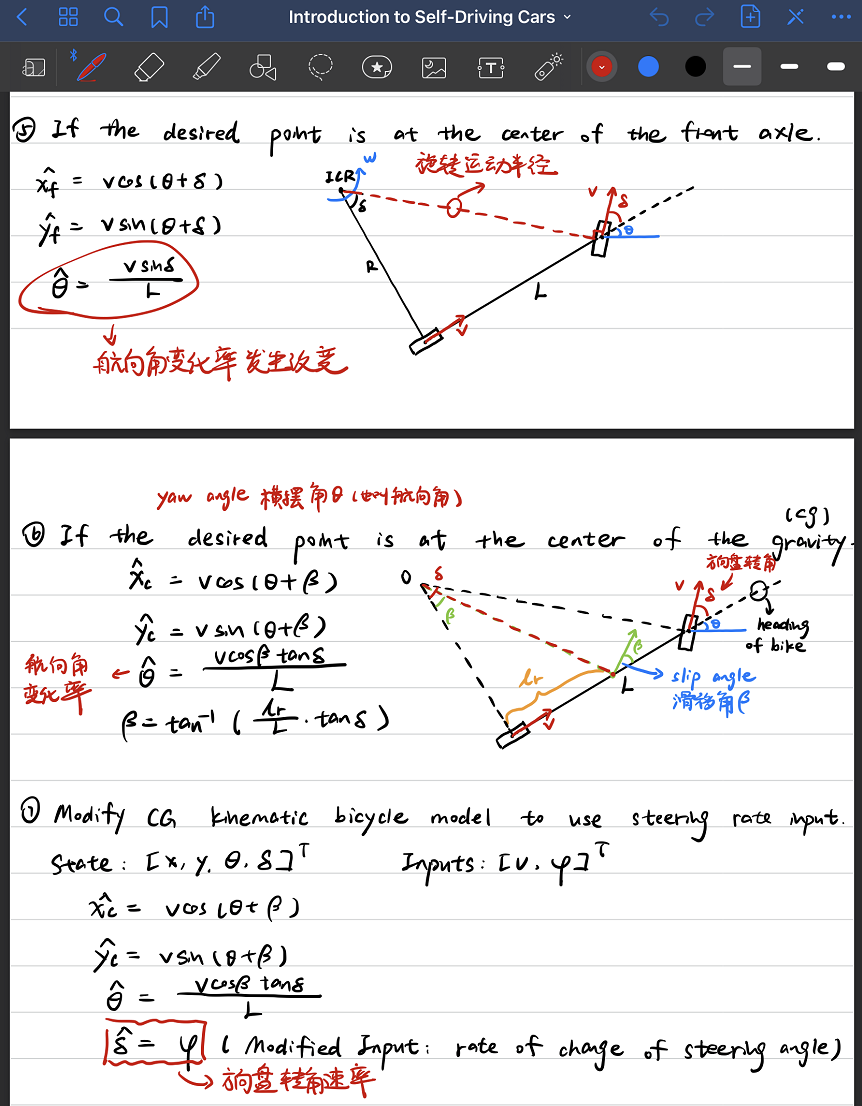 Introduction to Self-Driving Cars
⑤ If the desired point is at the center of the front axle.
x̂f = vcos(θ+δ)
ŷf = vsin(θ+δ)
θ̂ = vsinδ / L
航向角变化率发生改变
ICR
w
δ
旋转运动半径
R
L
v
v
δ
θ
yaw angle 横摆角θ(也叫航向角)
⑥ If the desired point is at the center of the gravity.
(cg)
x̂c = vcos(θ+β)
ŷc = vsin(θ+β)
航向角变化率 ← θ̂ = vcosβ tanδ / L
β = tan⁻¹ ( lr / L · tanδ )
O
δ
β
lr
v
L
β
slip angle
滑移角β
v
δ
θ
方向盘转角
heading
of bike
⑦ Modify CG kinematic bicycle model to use steering rate input.
State: [x, y, θ, δ]ᵀ Inputs: [v, φ]ᵀ
x̂c = vcos(θ+β)
ŷc = vsin(θ+β)
θ̂ = vcosβ tanδ / L
δ̂ = φ ( Modified Input: rate of change of steering angle)
方向盘转角速率